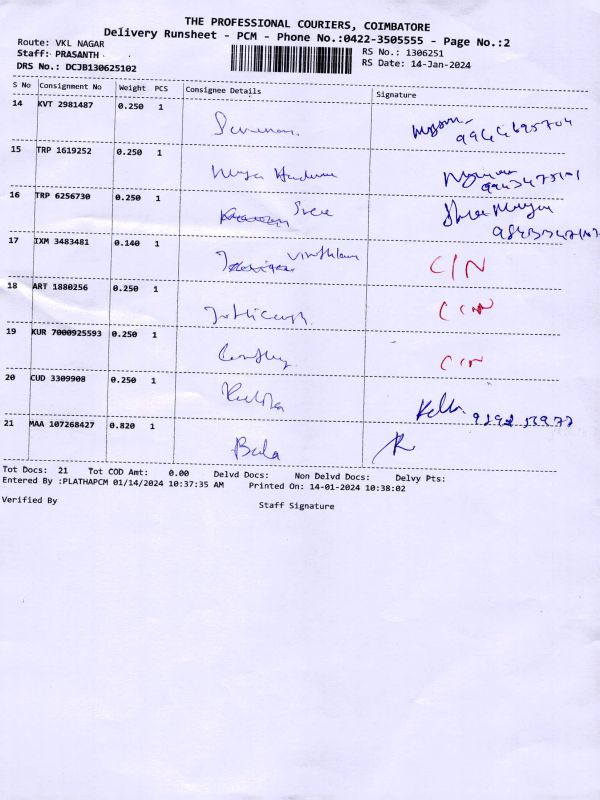 THE PROFESSIONAL COURIERS, COIMBATORE
Delivery Runsheet - PCM - Phone No.:0422-3505555 - Page No.:2
Route: VKL NAGAR
RS No.: 1306251
Staff: PRASANTH
RS Date: 14-Jan-2024
DRS No.: DCJB130625102
S No Consignment No Weight PCS Consignee Details Signature
14 KVT 2981487 0.250 1
15 TRP 1619252 0.250 1
16 TRP 6256730 0.250 1 Sree
17 IXM 3483481 0.140 1 C/N
18 ART 1880256 0.250 1 C/N
19 KUR 7000925593 0.250 1 C/N
20 CUD 3309908 0.250 1
21 MAA 107268427 0.820 1 Bala
Tot Docs: 21 Tot COD Amt: 0.00 Delvd Docs: Non Delvd Docs: Delvy Pts:
Entered By :PLATHAPCM 01/14/2024 10:37:35 AM Printed On: 14-01-2024 10:38:02
Verified By
Staff Signature